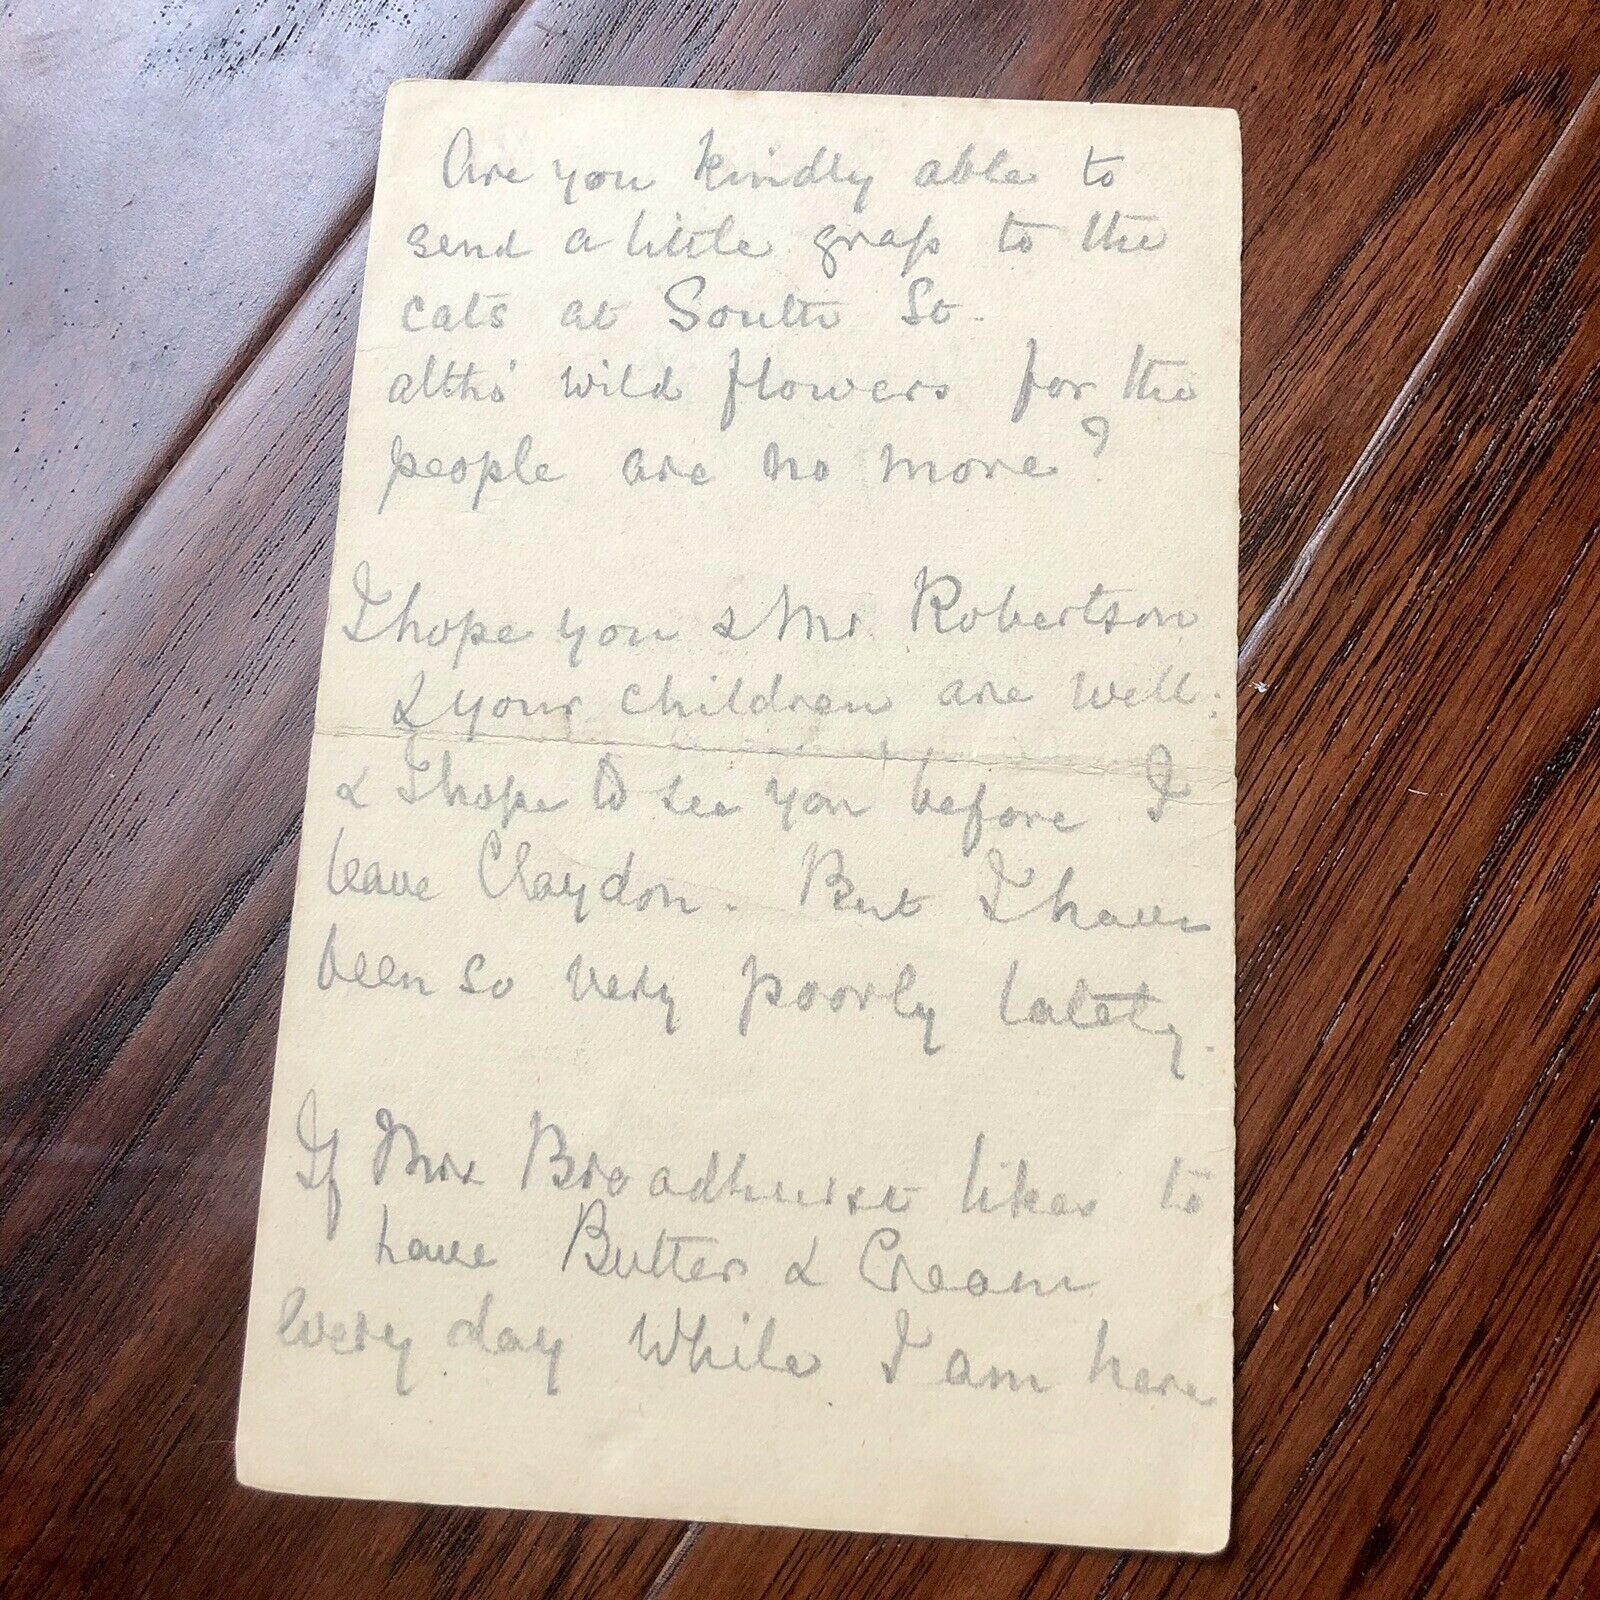 Are you kindly able to
send a little graſs to the
cats at South St.
altho' wild flowers for the
people are no more?
I hope you & Mr. Robertson
& your children are well:
& I hope to see you before I
leave Claydon. But I have
been so very poorly lately.
If Mrs Broadhurst likes to
have Butter & Cream
every day while I am here